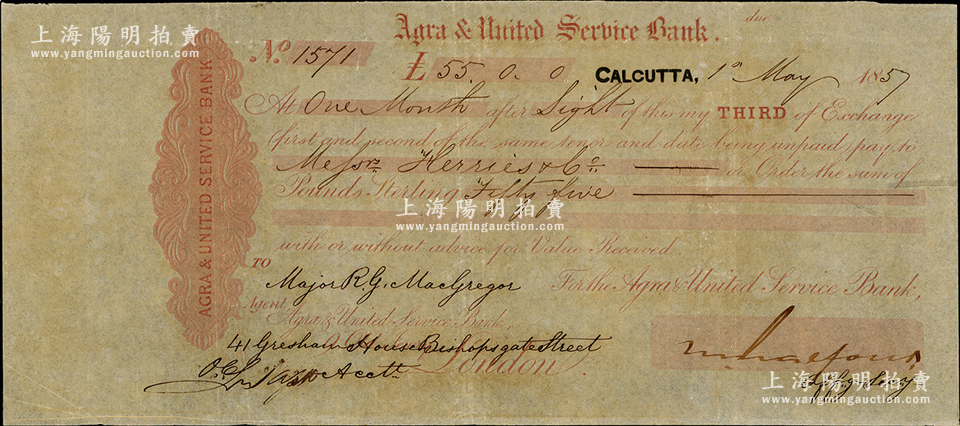 due
Agra & United Service Bank.
No. 1571 £ 55. 0. 0 CALCUTTA, 1st May 1857
At One Month after Sight of this my THIRD of Exchange
(first and second of the same tenor and date being unpaid) pay to
Messrs. Herries & Co. or Order the sum of
Pounds Sterling Fifty five
with or without advice for Value Received.
TO
Major R. G. MacGregor For the Agra & United Service Bank,
Agent
Agra & United Service Bank,
41 Gresham House Bishopsgate Street
London
Acctt.
AGRA & UNITED SERVICE BANK
上海陽明拍賣
www.yangmingauction.com
上海陽明拍賣
www.yangmingauction.com
上海陽明拍賣
www.yangmingauction.com
上海陽明拍賣
www.yangmingauction.com